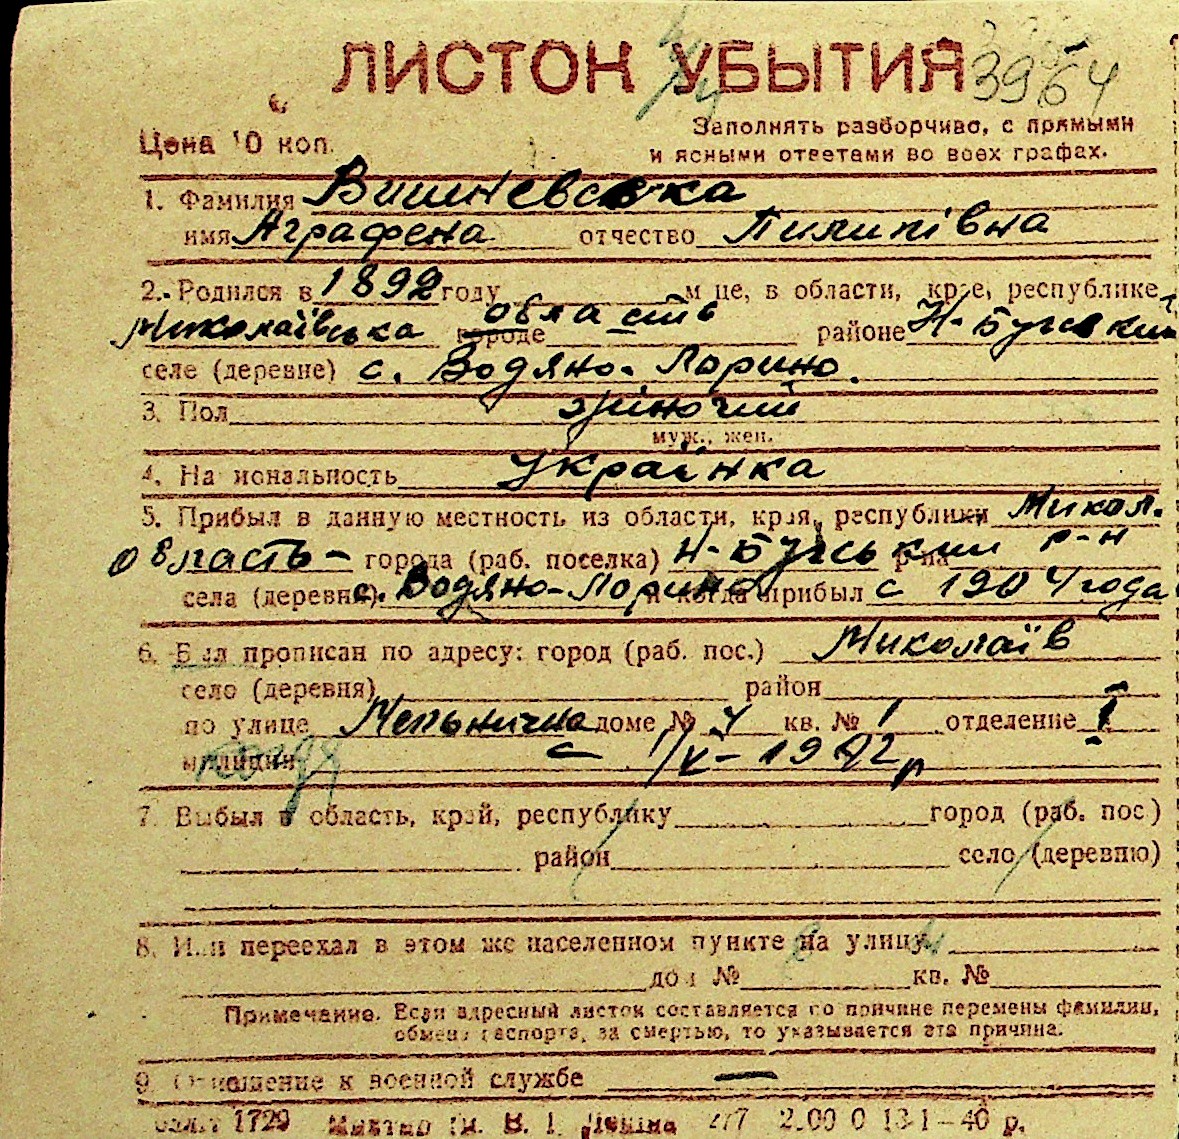 ЛИСТОК УБЫТИЯ 3964
Цена 10 коп.
Заполнять разборчиво, с прямыми
и ясными ответами во всех графах.
1. Фамилия Вишневська
имя Аграфена отчество Пилипівна
2. Родился в 1892 году м-це, в области, крае, республике
Миколаївська городе область районе Н-Бугський
селе (деревне) с. Водяно-Лорино.
3. Пол жіночий
муж., жен.
4. Национальность українка
5. Прибыл в данную местность из области, края, республики Микол.
область- города (раб. поселка) Н-Бугський р-н р-на
села (деревни) с. Водяно-Лорино и когда прибыл с 1904 года
6. Был прописан по адресу: город (раб. пос.) Миколаїв
село (деревня) район
по улице Мельнична доме № 4 кв. № 1 отделение I
милиции с 1/V-1942 р
7. Выбыл в область, край, республику город (раб. пос)
район село (деревню)
8. Или переехал в этом же населенном пункте на улицу
дом № кв. №
Примечание. Если адресный листок составляется по причине перемены фамилии,
обмена паспорта, за смертью, то указывается эта причина.
9. Отношение к военной службе —
1729 им. В. І. Леніна